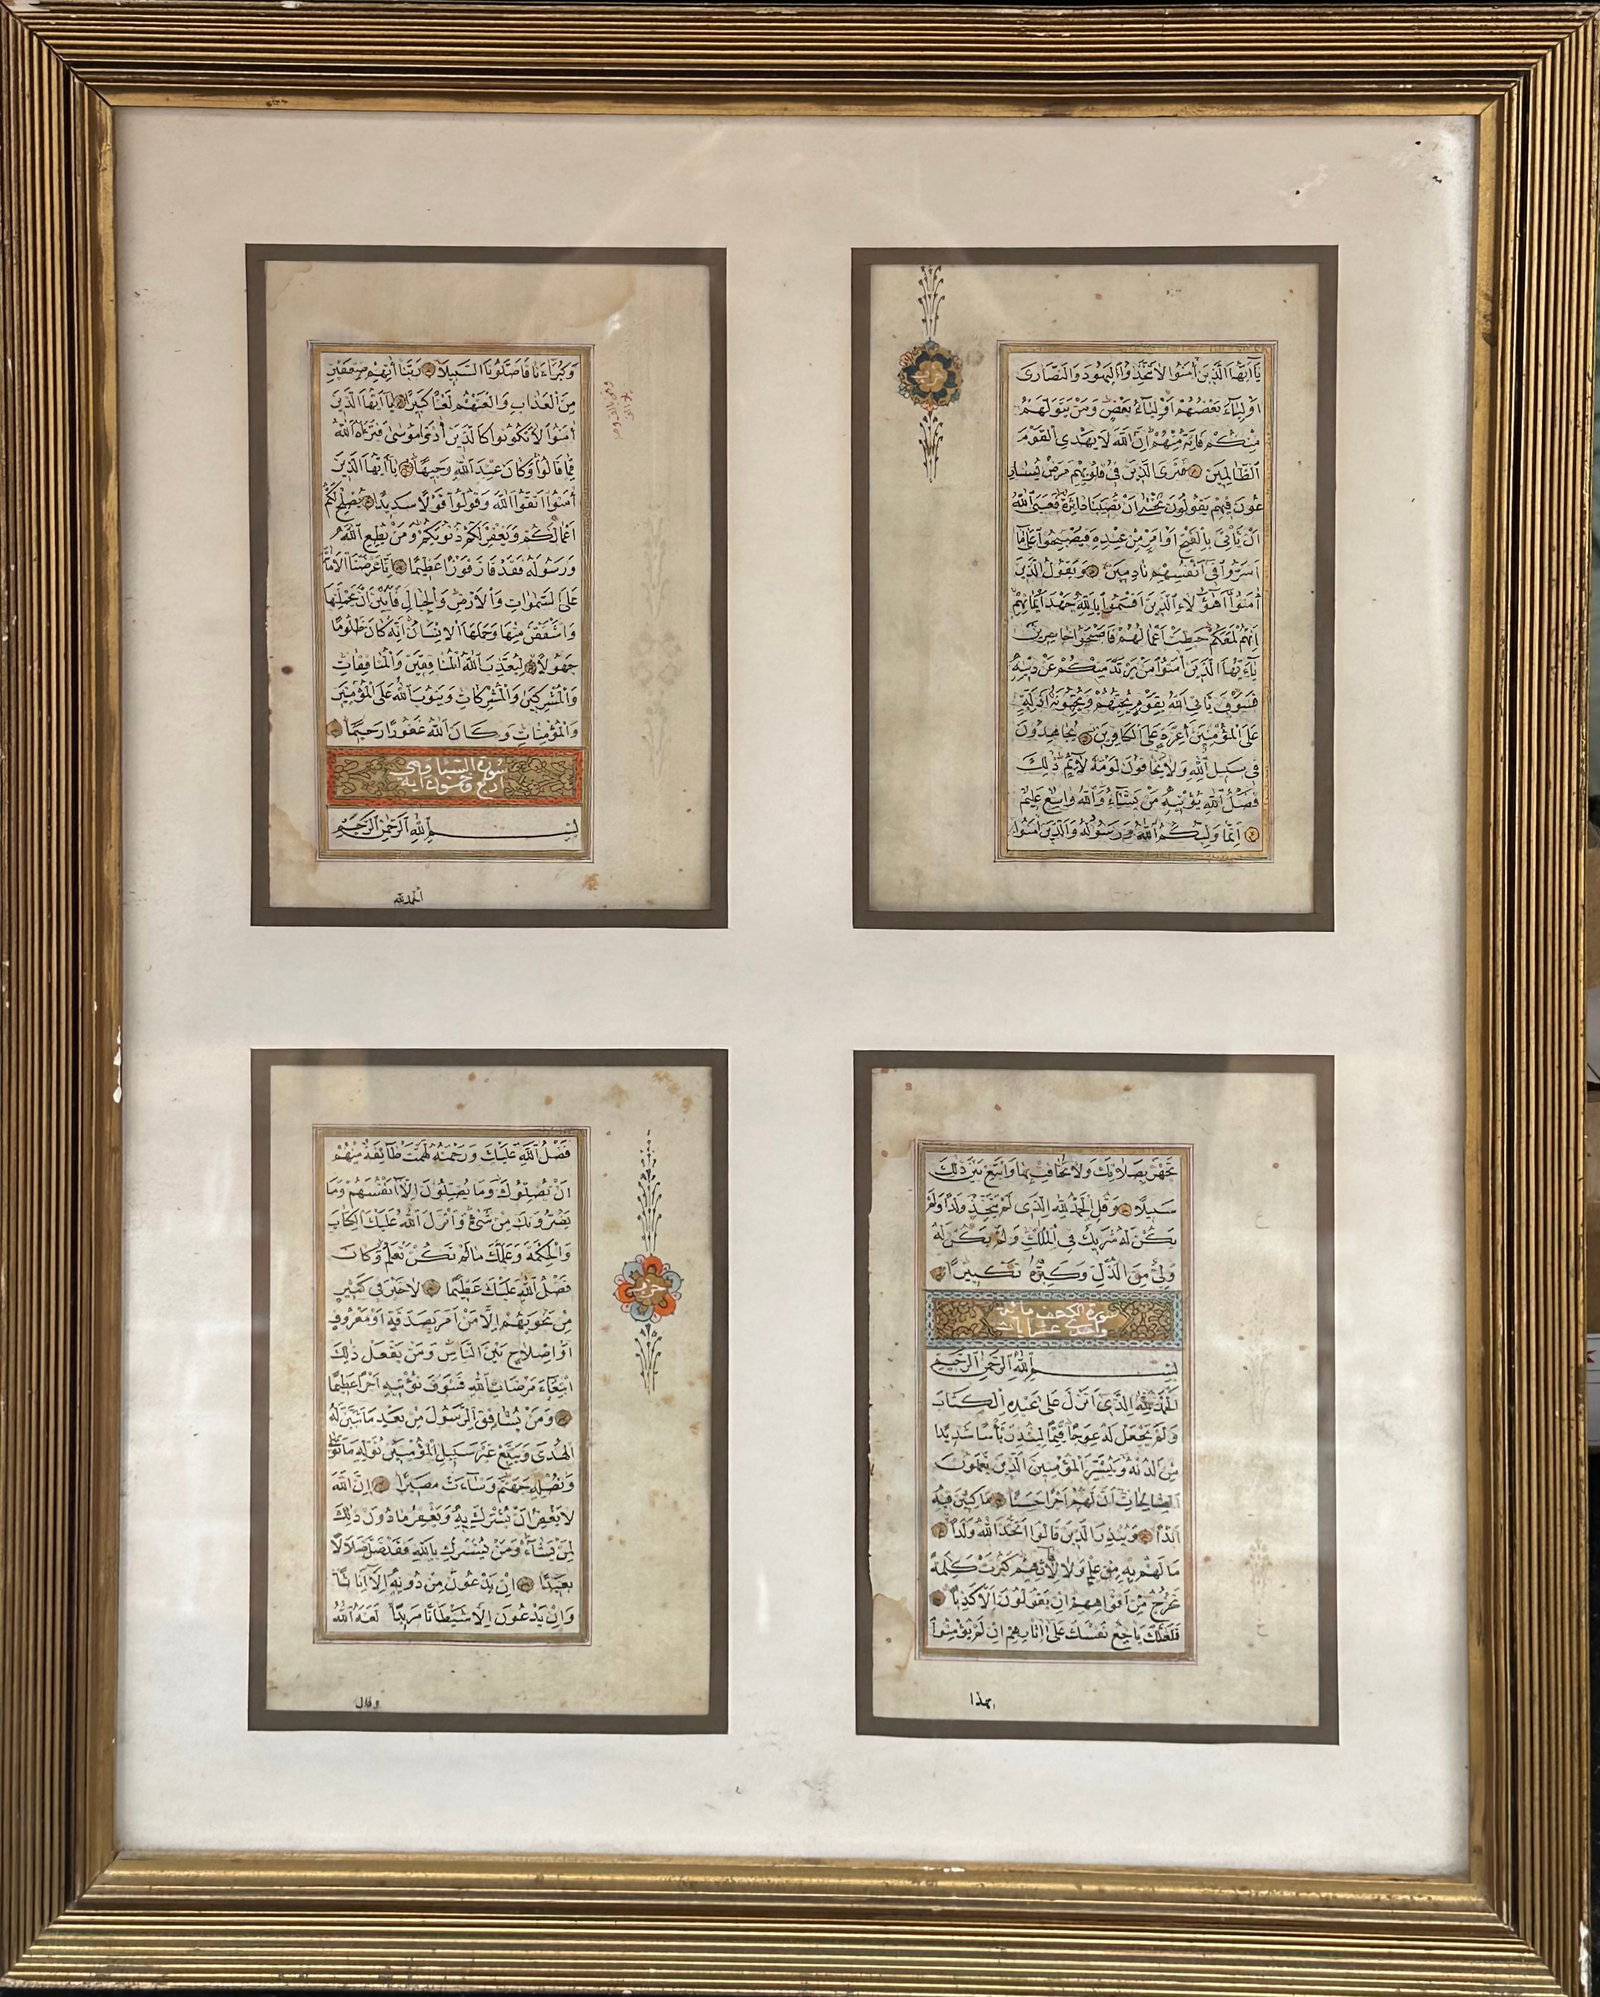 وَكُبَرَاءَنَا فَاَضَلُّونَا السَّبِيلَا رَبَّنَا اٰتِهِمْ ضِعْفَيْنِ
مِنَ الْعَذَابِ وَالْعَنْهُمْ لَعْنًا كَبِيرًا يَا اَيُّهَا الَّذِينَ
اٰمَنُوا لَا تَكُونُوا كَالَّذِينَ اٰذَوْا مُوسٰى فَبَرَّاَهُ اللّٰهُ
مِمَّا قَالُوا وَكَانَ عِنْدَ اللّٰهِ وَجِيهًا يَا اَيُّهَا الَّذِينَ
اٰمَنُوا اتَّقُوا اللّٰهَ وَقُولُوا قَوْلًا سَدِيدًا يُصْلِحْ لَكُمْ
اَعْمَالَكُمْ وَيَغْفِرْ لَكُمْ ذُنُوبَكُمْ وَمَنْ يُطِعِ اللّٰهَ
وَرَسُولَهُ فَقَدْ فَازَ فَوْزًا عَظِيمًا اِنَّا عَرَضْنَا الْاَمَانَةَ
عَلَى السَّمٰوَاتِ وَالْاَرْضِ وَالْجِبَالِ فَاَبَيْنَ اَنْ يَحْمِلْنَهَا
وَاَشْفَقْنَ مِنْهَا وَحَمَلَهَا الْاِنْسَانُ اِنَّهُ كَانَ ظَلُومًا
جَهُولًا لِيُعَذِّبَ اللّٰهُ الْمُنَافِقِينَ وَالْمُنَافِقَاتِ
وَالْمُشْرِكِينَ وَالْمُشْرِكَاتِ وَيَتُوبَ اللّٰهُ عَلَى الْمُؤْمِنِينَ
وَالْمُؤْمِنَاتِ وَكَانَ اللّٰهُ غَفُورًا رَحِيمًا
سورة السبا وهى
اربع وخمسون اية
بِسْمِ اللّٰهِ الرَّحْمٰنِ الرَّحِيمِ
الحمد لله
حزب
يَا اَيُّهَا الَّذِينَ اٰمَنُوا لَا تَتَّخِذُوا الْيَهُودَ وَالنَّصَارٰى
اَوْلِيَاءَ بَعْضُهُمْ اَوْلِيَاءُ بَعْضٍ وَمَنْ يَتَوَلَّهُمْ
مِنْكُمْ فَاِنَّهُ مِنْهُمْ اِنَّ اللّٰهَ لَا يَهْدِى الْقَوْمَ
الظَّالِمِينَ فَتَرَى الَّذِينَ فِى قُلُوبِهِمْ مَرَضٌ يُسَارِ
عُونَ فِيهِمْ يَقُولُونَ نَخْشٰى اَنْ تُصِيبَنَا دَائِرَةٌ فَعَسَى اللّٰهُ
اَنْ يَأْتِىَ بِالْفَتْحِ اَوْ اَمْرٍ مِنْ عِنْدِهِ فَيُصْبِحُوا عَلٰى مَا
اَسَرُّوا فِى اَنْفُسِهِمْ نَادِمِينَ وَيَقُولُ الَّذِينَ
اٰمَنُوا اَهٰؤُلَاءِ الَّذِينَ اَقْسَمُوا بِاللّٰهِ جَهْدَ اَيْمَانِهِمْ
اِنَّهُمْ لَمَعَكُمْ حَبِطَتْ اَعْمَالُهُمْ فَاَصْبَحُوا خَاسِرِينَ
يَا اَيُّهَا الَّذِينَ اٰمَنُوا مَنْ يَرْتَدَّ مِنْكُمْ عَنْ دِينِهِ
فَسَوْفَ يَأْتِى اللّٰهُ بِقَوْمٍ يُحِبُّهُمْ وَيُحِبُّونَهُ اَذِلَّةٍ
عَلَى الْمُؤْمِنِينَ اَعِزَّةٍ عَلَى الْكَافِرِينَ يُجَاهِدُونَ
فِى سَبِيلِ اللّٰهِ وَلَا يَخَافُونَ لَوْمَةَ لَائِمٍ ذٰلِكَ
فَضْلُ اللّٰهِ يُؤْتِيهِ مَنْ يَشَاءُ وَاللّٰهُ وَاسِعٌ عَلِيمٌ
اِنَّمَا وَلِيُّكُمُ اللّٰهُ وَرَسُولُهُ وَالَّذِينَ اٰمَنُوا
فَضْلُ اللّٰهِ عَلَيْكَ وَرَحْمَتُهُ لَهَمَّتْ طَائِفَةٌ مِنْهُمْ
اَنْ يُضِلُّوكَ وَمَا يُضِلُّونَ اِلَّا اَنْفُسَهُمْ وَمَا
يَضُرُّونَكَ مِنْ شَىْءٍ وَاَنْزَلَ اللّٰهُ عَلَيْكَ الْكِتَابَ
وَالْحِكْمَةَ وَعَلَّمَكَ مَا لَمْ تَكُنْ تَعْلَمُ وَكَانَ
فَضْلُ اللّٰهِ عَلَيْكَ عَظِيمًا لَا خَيْرَ فِى كَثِيرٍ
مِنْ نَجْوٰيهُمْ اِلَّا مَنْ اَمَرَ بِصَدَقَةٍ اَوْ مَعْرُوفٍ
اَوْ اِصْلَاحٍ بَيْنَ النَّاسِ وَمَنْ يَفْعَلْ ذٰلِكَ
ابْتِغَاءَ مَرْضَاتِ اللّٰهِ فَسَوْفَ نُؤْتِيهِ اَجْرًا عَظِيمًا
وَمَنْ يُشَاقِقِ الرَّسُولَ مِنْ بَعْدِ مَا تَبَيَّنَ لَهُ
الْهُدٰى وَيَتَّبِعْ غَيْرَ سَبِيلِ الْمُؤْمِنِينَ نُوَلِّهِ مَا تَوَلّٰى
وَنُصْلِهِ جَهَنَّمَ وَسَاءَتْ مَصِيرًا اِنَّ اللّٰهَ
لَا يَغْفِرُ اَنْ يُشْرَكَ بِهِ وَيَغْفِرُ مَا دُونَ ذٰلِكَ
لِمَنْ يَشَاءُ وَمَنْ يُشْرِكْ بِاللّٰهِ فَقَدْ ضَلَّ ضَلَالًا
بَعِيدًا اِنْ يَدْعُونَ مِنْ دُونِهِ اِلَّا اِنَاثًا
وَاِنْ يَدْعُونَ اِلَّا شَيْطَانًا مَرِيدًا لَعَنَهُ اللّٰهُ
حزب
وقال
تَجْهَرْ بِصَلَاتِكَ وَلَا تُخَافِتْ بِهَا وَابْتَغِ بَيْنَ ذٰلِكَ
سَبِيلًا وَقُلِ الْحَمْدُ لِلّٰهِ الَّذِى لَمْ يَتَّخِذْ وَلَدًا وَلَمْ
يَكُنْ لَهُ شَرِيكٌ فِى الْمُلْكِ وَلَمْ يَكُنْ لَهُ
وَلِىٌّ مِنَ الذُّلِّ وَكَبِّرْهُ تَكْبِيرًا
سورة الكهف مائة
واحدى عشر ايات
بِسْمِ اللّٰهِ الرَّحْمٰنِ الرَّحِيمِ
اَلْحَمْدُ لِلّٰهِ الَّذِى اَنْزَلَ عَلٰى عَبْدِهِ الْكِتَابَ
وَلَمْ يَجْعَلْ لَهُ عِوَجًا قَيِّمًا لِيُنْذِرَ بَأْسًا شَدِيدًا
مِنْ لَدُنْهُ وَيُبَشِّرَ الْمُؤْمِنِينَ الَّذِينَ يَعْمَلُونَ
الصَّالِحَاتِ اَنَّ لَهُمْ اَجْرًا حَسَنًا مَاكِثِينَ فِيهِ
اَبَدًا وَيُنْذِرَ الَّذِينَ قَالُوا اتَّخَذَ اللّٰهُ وَلَدًا
مَا لَهُمْ بِهِ مِنْ عِلْمٍ وَلَا لِاٰبَائِهِمْ كَبُرَتْ كَلِمَةً
تَخْرُجُ مِنْ اَفْوَاهِهِمْ اِنْ يَقُولُونَ اِلَّا كَذِبًا
فَلَعَلَّكَ بَاخِعٌ نَفْسَكَ عَلٰى اٰثَارِهِمْ اِنْ لَمْ يُؤْمِنُوا
بهذا